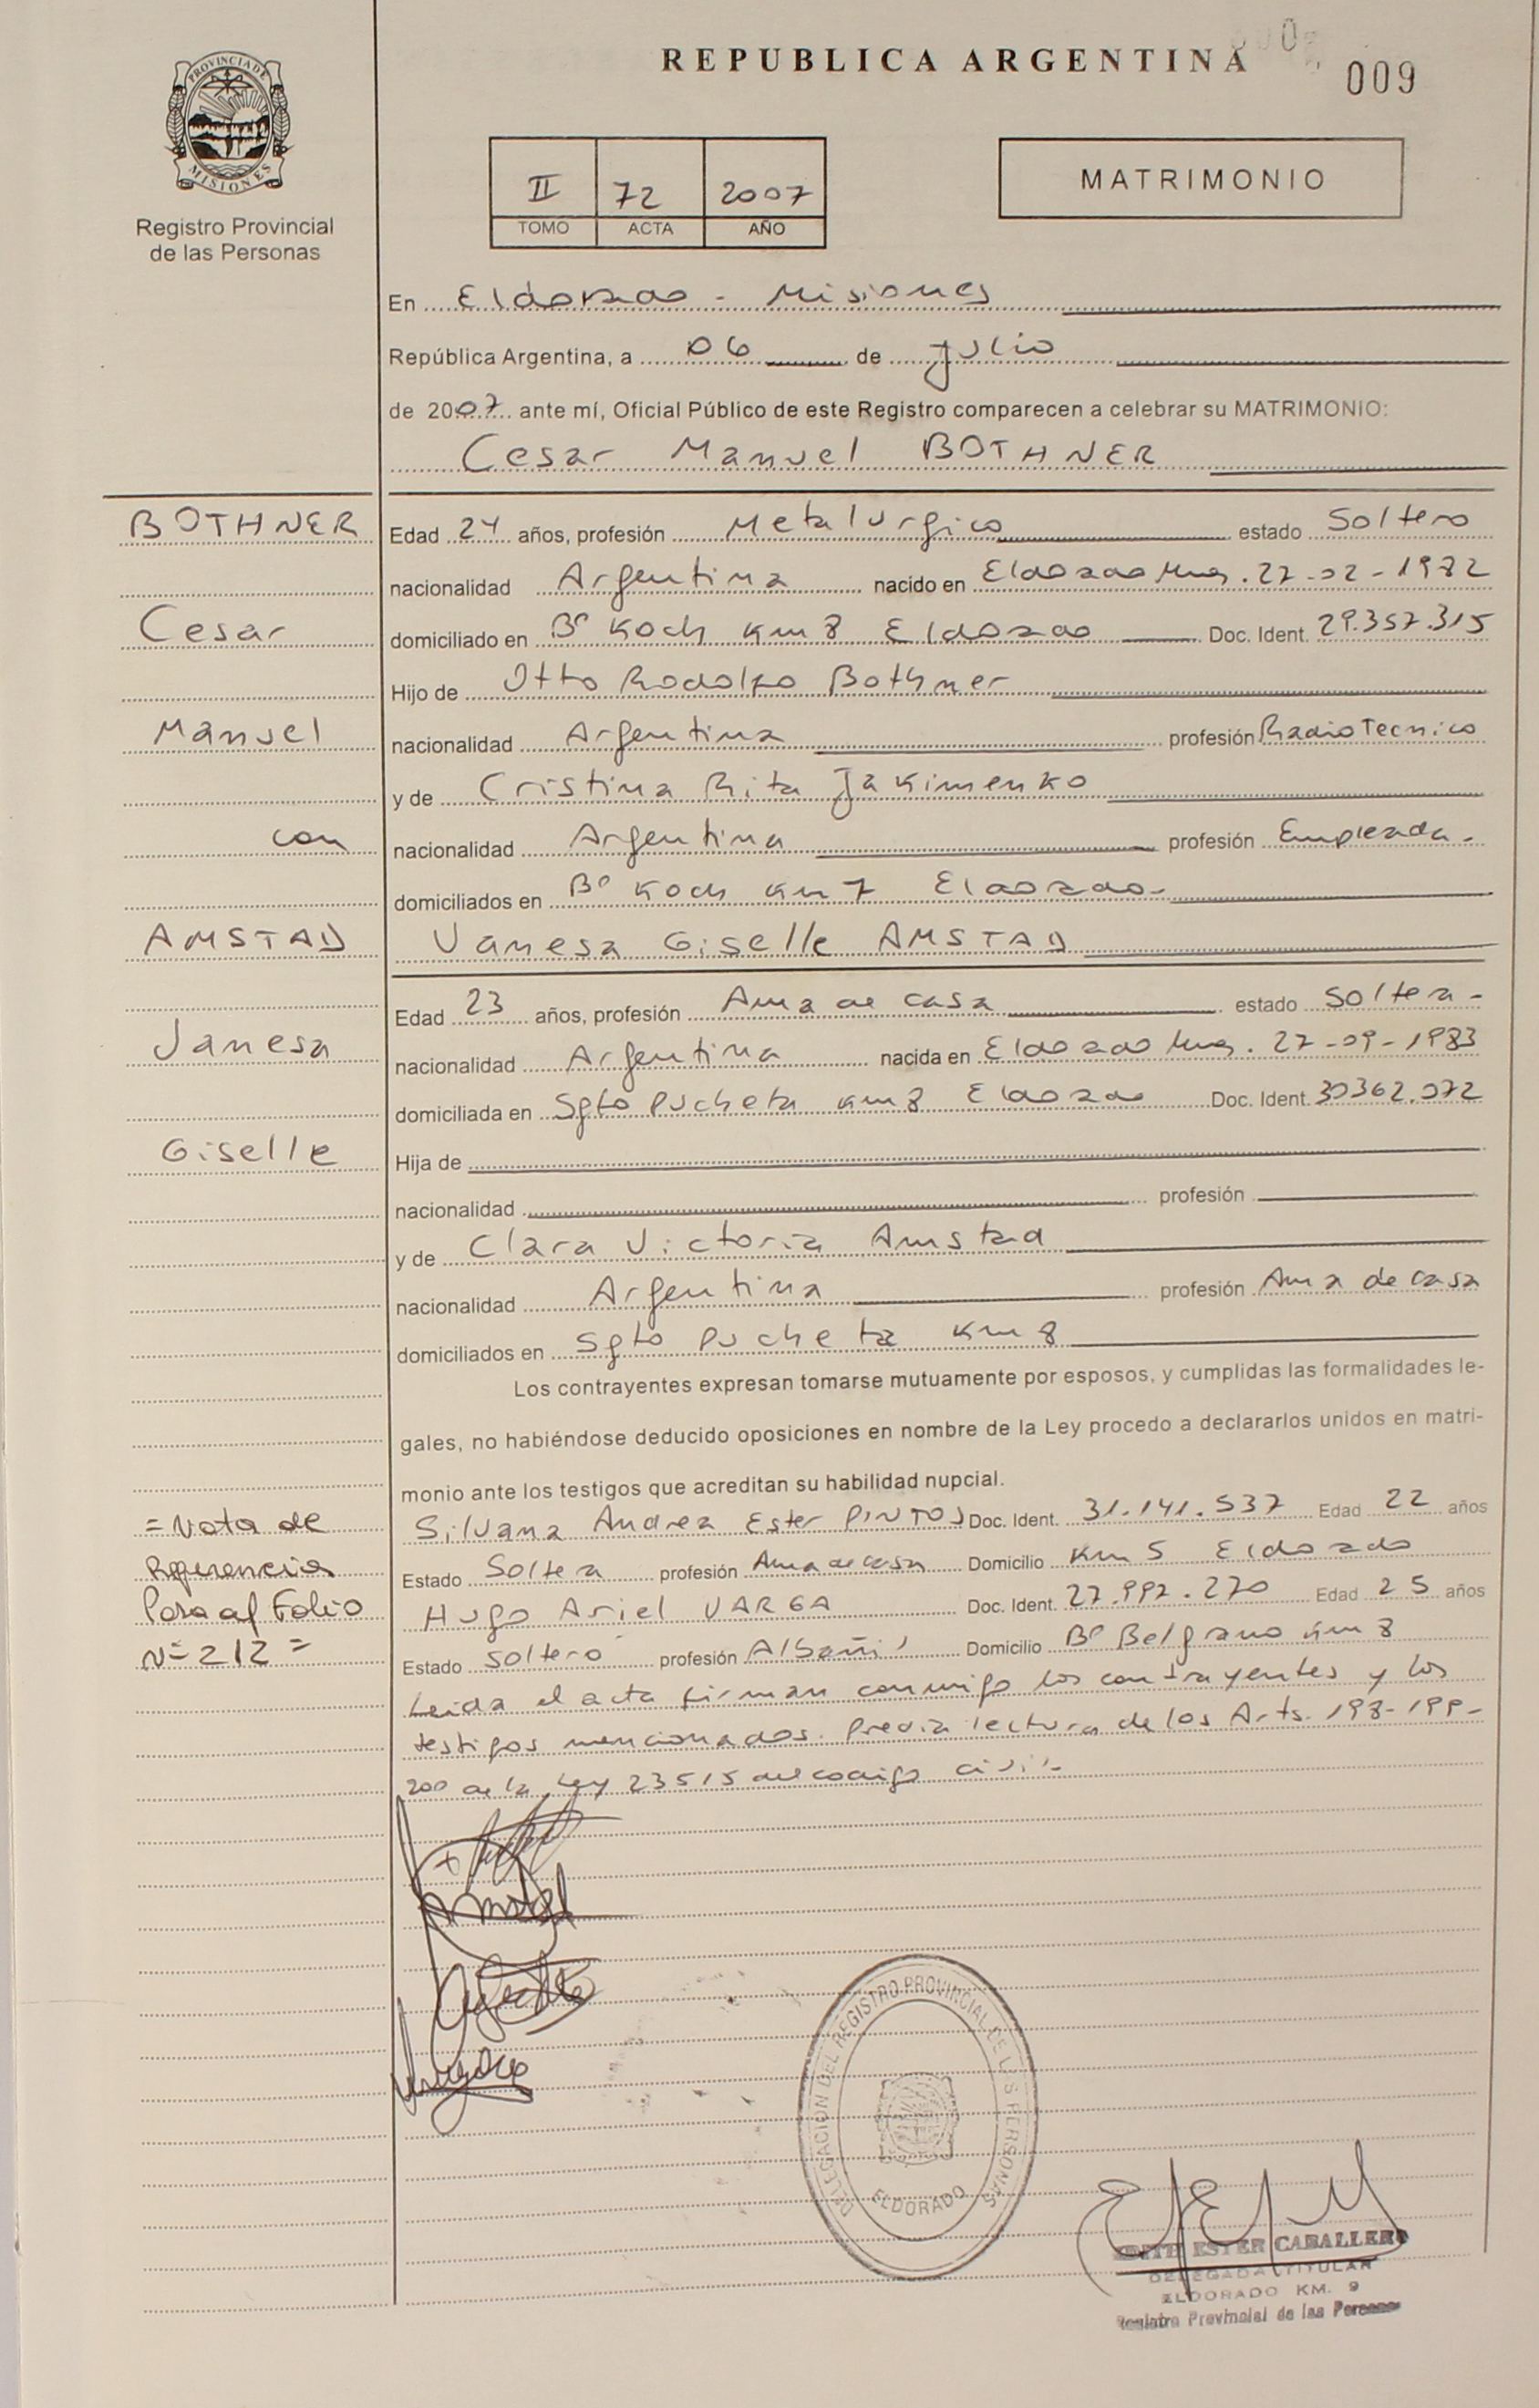 REPUBLICA ARGENTINA
009
PROVINCIA DE
MISIONES
Registro Provincial
de las Personas
II 72 2007
TOMO ACTA AÑO
MATRIMONIO
En Eldorado - Misiones
República Argentina, a 06 de Julio
de 2007 ante mí, Oficial Público de este Registro comparecen a celebrar su MATRIMONIO:
Cesar Manuel BOTHNER
BOTHNER
Edad 24 años, profesión Metalurgico estado Soltero
nacionalidad Argentina nacido en Eldorado Mnes. 27-02-1982
Cesar
domiciliado en Bº Koch Km 8 Eldorado Doc. Ident. 29.357.315
Hijo de Otto Rodolfo Bothner
Manuel
nacionalidad Argentina profesión RadioTecnico
y de Cristina Rita Jakimenko
con
nacionalidad Argentina profesión Empleada.
domiciliados en Bº Koch Km 7 Eldorado-
AMSTAD
Vanesa Giselle AMSTAD
Edad 23 años, profesión Ama de casa estado Soltera-
Vanesa
nacionalidad Argentina nacida en Eldorado Mnes. 27-09-1983
domiciliada en Sgto Pucheta Km 8 Eldorado Doc. Ident. 30362.072
Giselle
Hija de
nacionalidad profesión
y de Clara Victoria Amstad
nacionalidad Argentina profesión Ama de casa
domiciliados en Sgto Pucheta Km 8
Los contrayentes expresan tomarse mutuamente por esposos, y cumplidas las formalidades le-
gales, no habiéndose deducido oposiciones en nombre de la Ley procedo a declararlos unidos en matri-
monio ante los testigos que acreditan su habilidad nupcial.
= Nota de
Referencia
Pasa al Folio
Nº 212 =
Silvana Andrea Ester PINTOS Doc. Ident. 31.141.537 Edad 22 años
Estado Soltera profesión Ama de casa Domicilio Km 5 Eldorado
Hugo Ariel VARGA Doc. Ident. 27.992.270 Edad 25 años
Estado Soltero profesión Albañil Domicilio Bº Belgrano Km 8
Leida el acta firman conmigo los contrayentes y los
testigos mencionados. Previa lectura de los Arts. 198-199-
200 de la Ley 23515 del codigo civil-
Amstad
DELEGACION DEL REGISTRO PROVINCIAL DE LAS PERSONAS
ELDORADO
EDITH ESTER CABALLERO
DELEGADA TITULAR
ELDORADO KM. 9
Registro Provincial de las Personas